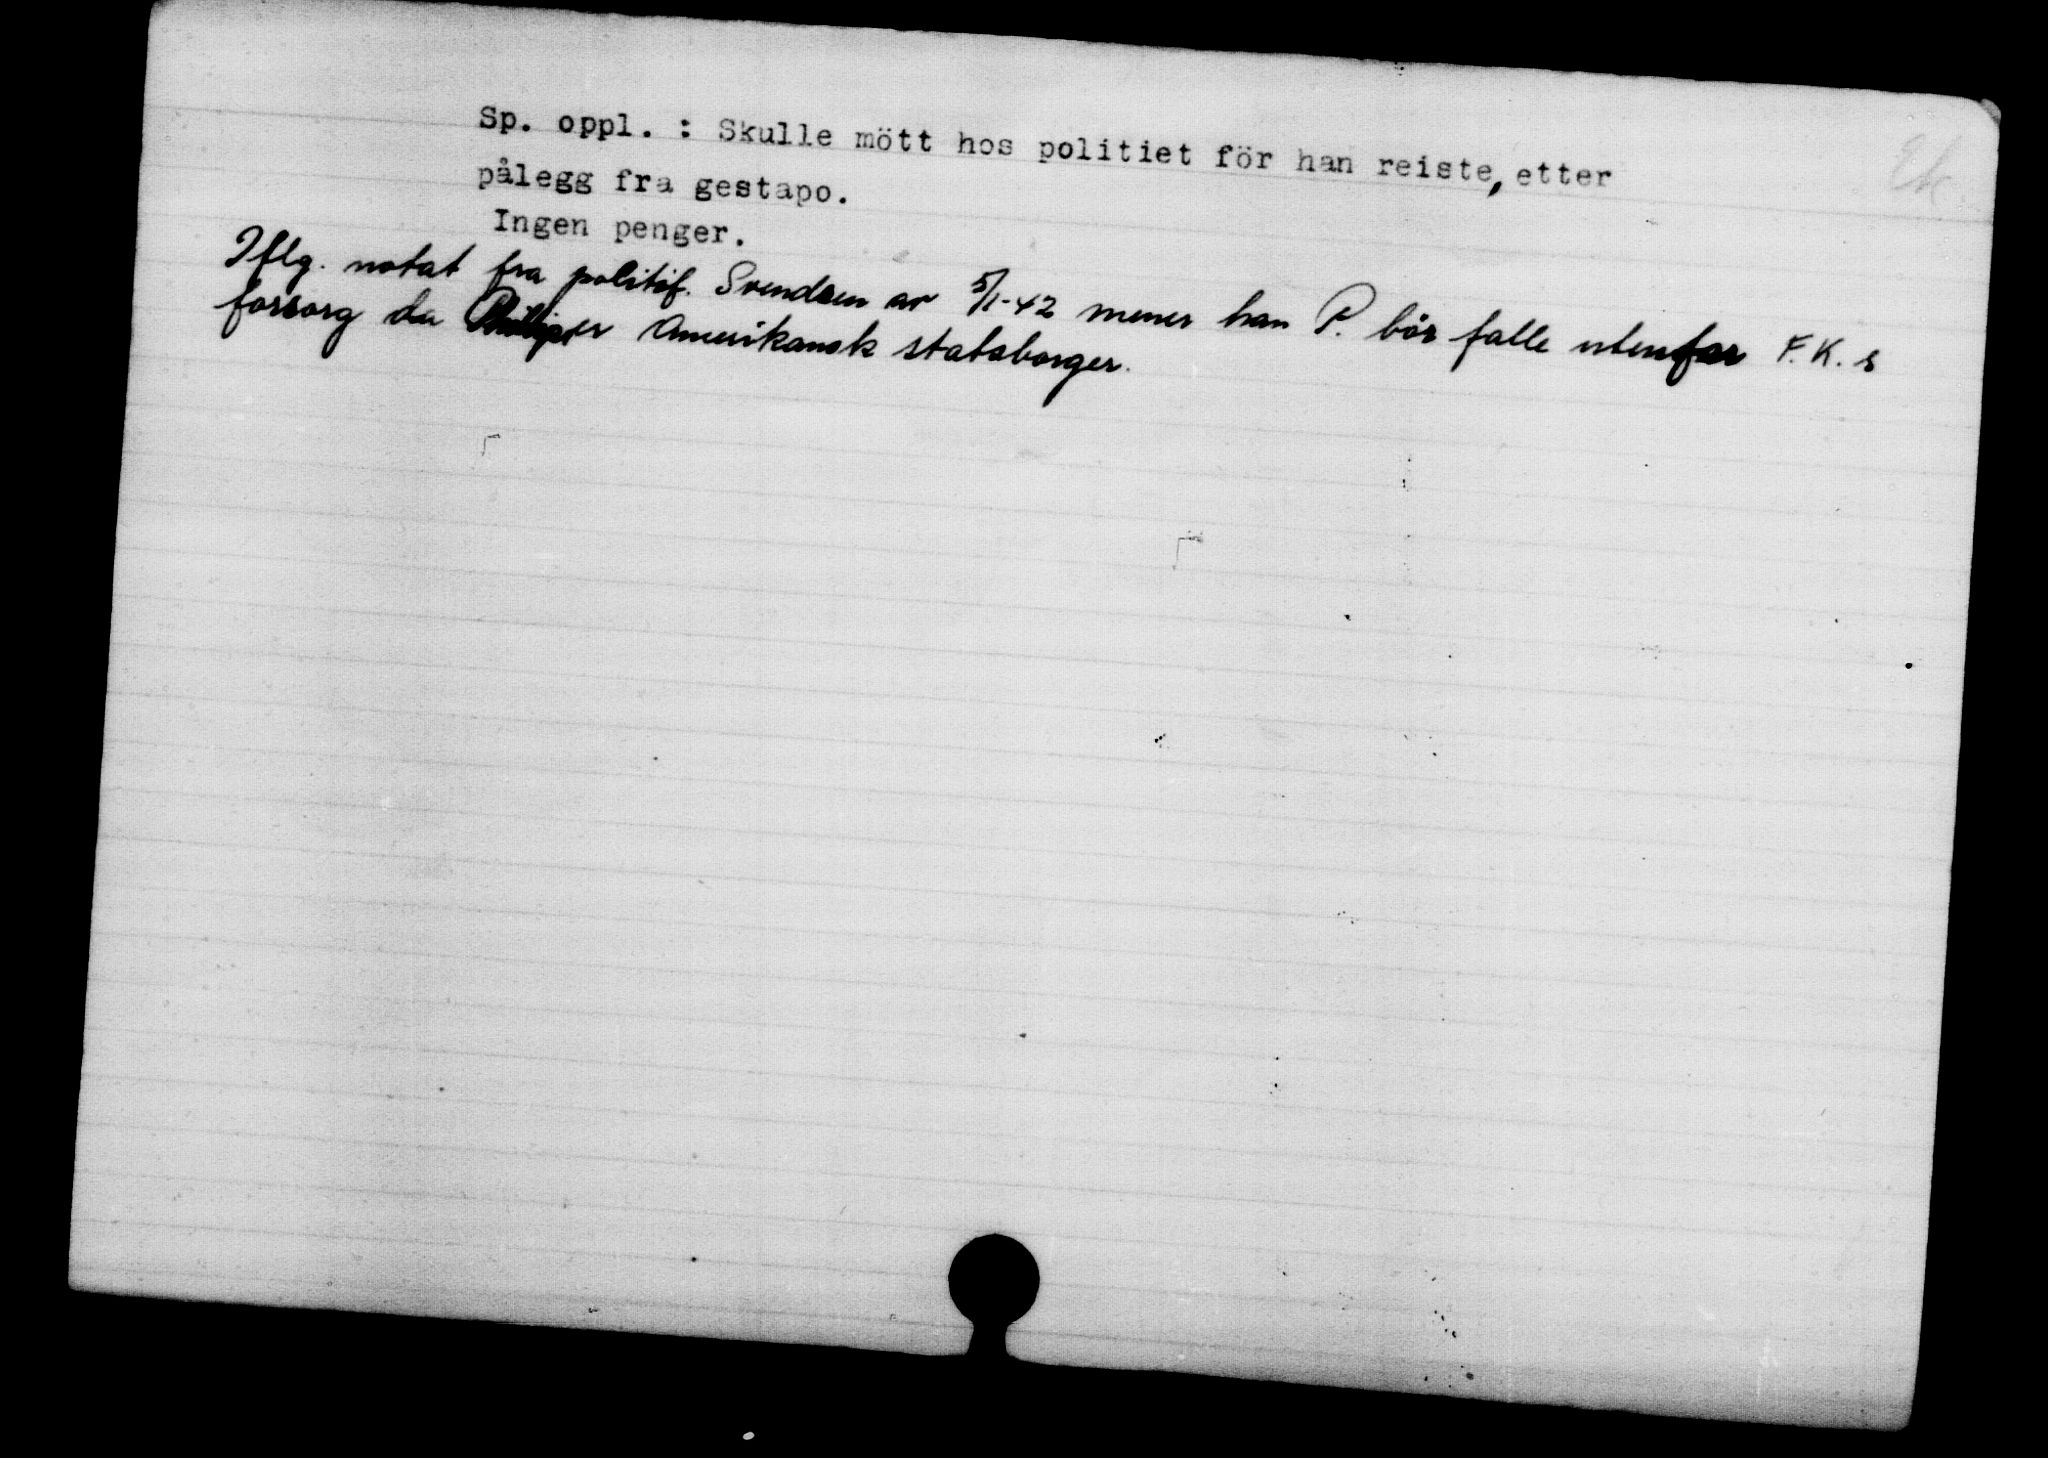 Sp. oppl. : Skulle mött hos politiet för han reiste, etter
pålegg fra gestapo.
Ingen penger.
Iflg. notat fra politif. Svendsen av 5/1-42 mener han P. bör falle utenfor F.K.s
forsorg da Phillips er Amerikansk statsborger.